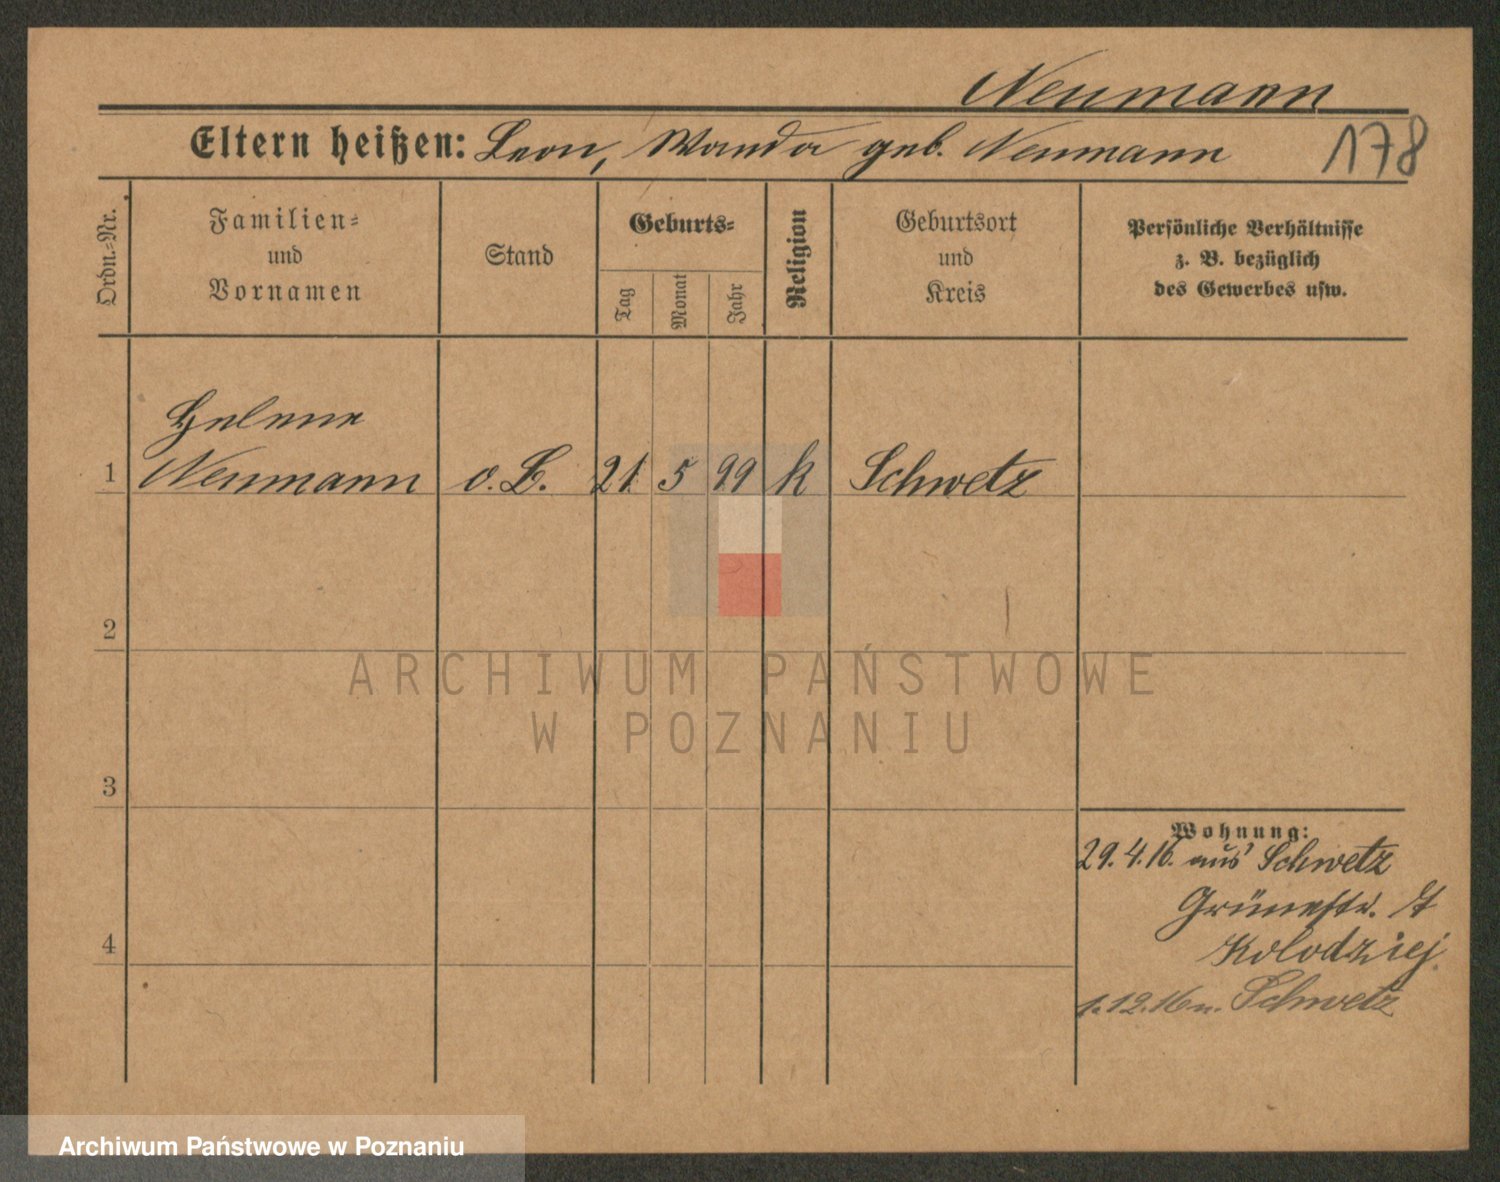 Neumann
Eltern heißen: Leon, Wanda geb. Neumann
178
Ordn.-Nr.
Familien-
und
Vornamen
Stand
Geburts-
Tag
Monat
Jahr
Religion
Geburtsort
und
Kreis
Persönliche Verhältnisse
z. B. bezüglich
des Gewerbes usw.
Helene
1 Neumann o. B. 21 5 99 k Schwetz
2
ARCHIWUM PAŃSTWOWE
W POZNANIU
3
Wohnung:
29.4.16. aus Schwetz
Grünestr.
4
Kolodziej
1.12.16 n. Schwetz
Archiwum Państwowe w Poznaniu